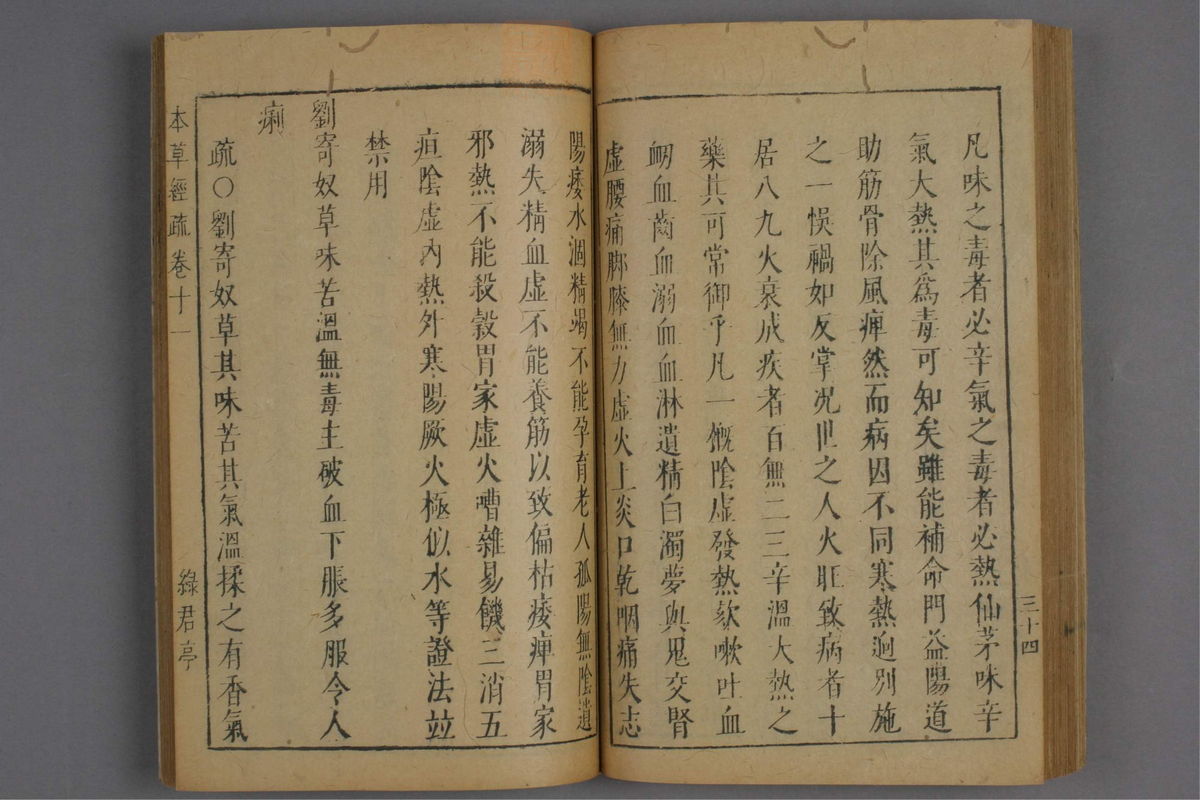 凡味之毒者必辛氣之毒者必熱仙茅味辛
氣大熱其爲毒可知矣雖能補命門益陽道
助筋骨除風痺然而病因不同寒熱迥別施
之一悞禍如反掌况世之人火旺致病者十
居八九火衰成疾者百無二三辛溫大熱之
藥其可常御乎凡一槪陰虛發熱欬嗽吐血
衂血齒血溺血血淋遺精白濁夢與鬼交腎
虛腰痛脚膝無力虛火上炎口乾咽痛失志
三十四
陽痿水涸精竭不能孕育老人孤陽無陰遺
溺失精血虛不能養筋以致偏枯痿痺胃家
邪熱不能殺穀胃家虛火嘈雜易饑三消五
疸陰虛內熱外寒陽厥火極似水等證法竝
禁用
劉寄奴草味苦溫無毒主破血下脹多服令人
痢
疏○劉寄奴草其味苦其氣溫揉之有香氣
本草經疏 卷十一
綠君亭